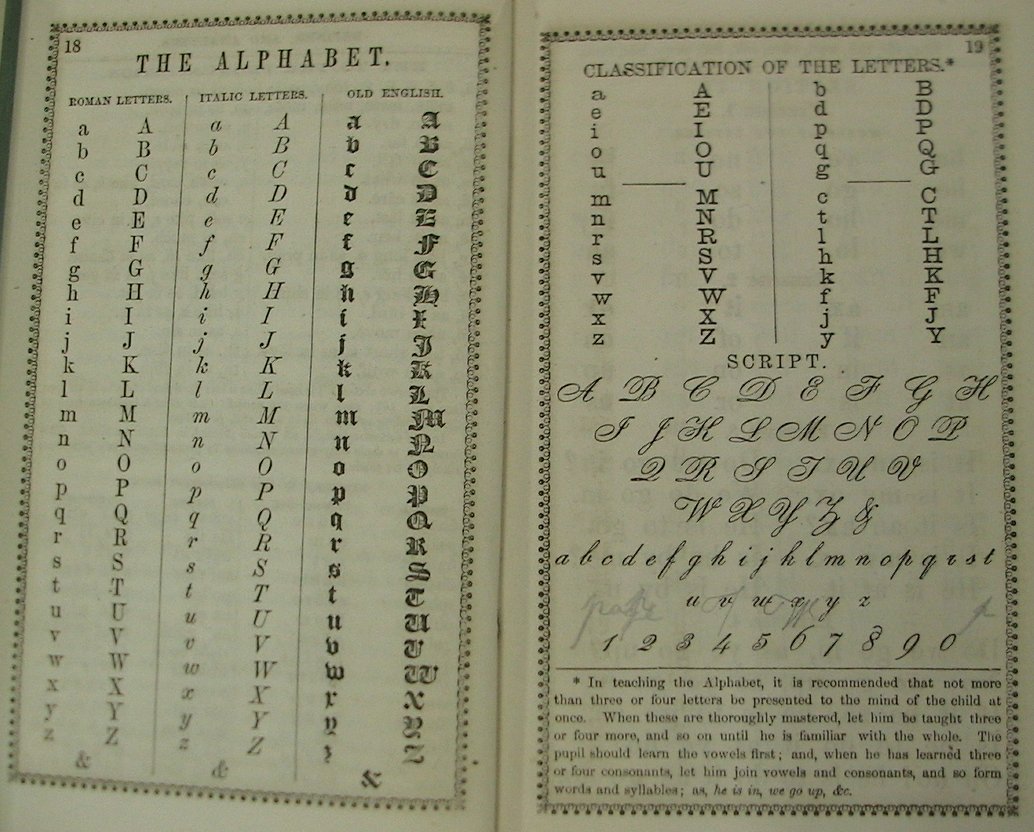 18
THE ALPHABET.
ROMAN LETTERS. ITALIC LETTERS. OLD ENGLISH.
a A a A a A
b B b B b B
c C c C c C
d D d D d D
e E e E e E
f F f F f F
g G g G g G
h H h H h H
i I i I i I
j J j J j J
k K k K k K
l L l L l L
m M m M m M
n N n N n N
o O o O o O
p P p P p P
q Q q Q q Q
r R r R r R
s S s S s S
t T t T t T
u U u U u U
v V v V v V
w W w W w W
x X x X x X
y Y y Y y Y
z Z z Z z Z
& & &
19
CLASSIFICATION OF THE LETTERS.*
a A b B
e E d D
i I p P
o O q Q
u U g G
m M c C
n N t T
r R l L
s S h H
v V k K
w W f F
x X j J
z Z y Y
SCRIPT.
A B C D E F G H
I J K L M N O P
Q R S T U V
W X Y Z &
a b c d e f g h i j k l m n o p q r s t
u v w x y z
1 2 3 4 5 6 7 8 9 0
* In teaching the Alphabet, it is recommended that not more
than three or four letters be presented to the mind of the child at
once. When these are thoroughly mastered, let him be taught three
or four more, and so on until he is familiar with the whole. The
pupil should learn the vowels first; and, when he has learned three
or four consonants, let him join vowels and consonants, and so form
words and syllables; as, he is in, we go up, &c.